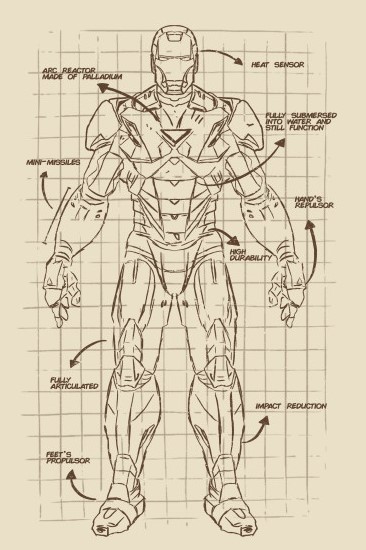 HEAT SENSOR
ARC REACTOR
MADE OF PALLADIUM
FULLY SUBMERSED
INTO WATER AND
STILL FUNCTION
MINI-MISSILES
HAND'S
REPULSOR
HIGH
DURABILITY
FULLY
ARTICULATED
IMPACT REDUCTION
FEET'S
PROPULSOR